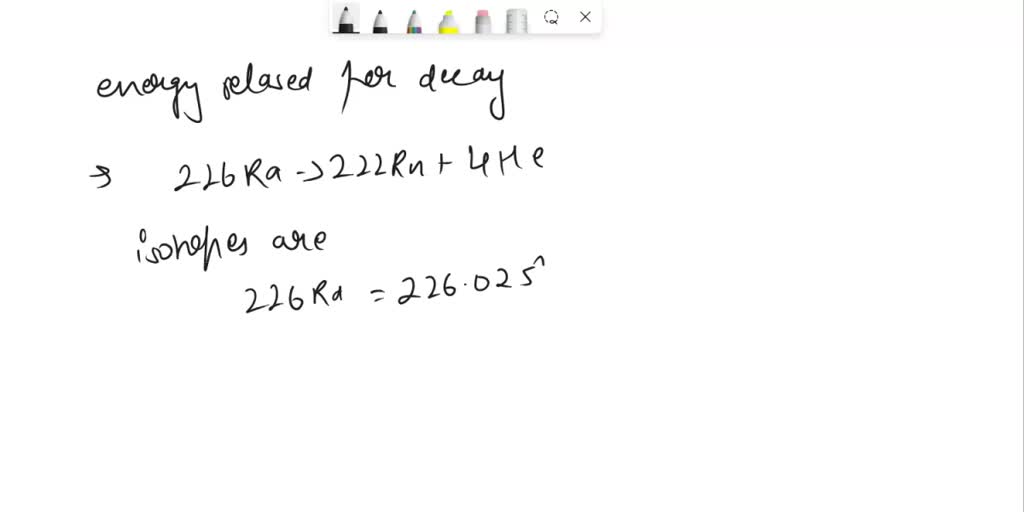 energy relased for decay
→ 226Ra → 222Rn + 4He
isotopes are
226Ra = 226.025